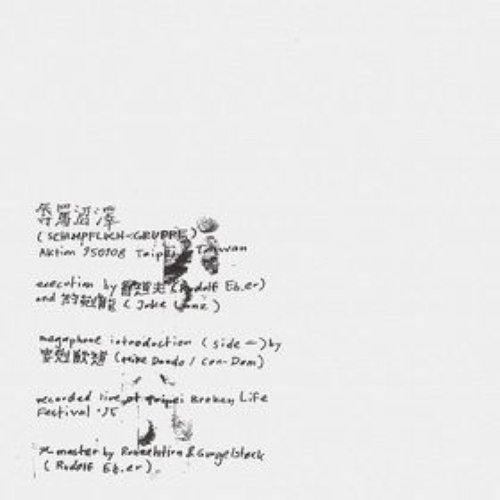 辱罵沼澤
(SCHIMPFLUCH-GRUPPE)
Aktion 950908 Taipei Taiwan
execution by (Rudolf Eb.er)
and (Joke Lanz)
megaphone introduction (side 一) by
(Mike Dando / Con-Dom)
recorded live at Taipei Broken Life
Festival '95
master by &
(Rudolf Eb.er).